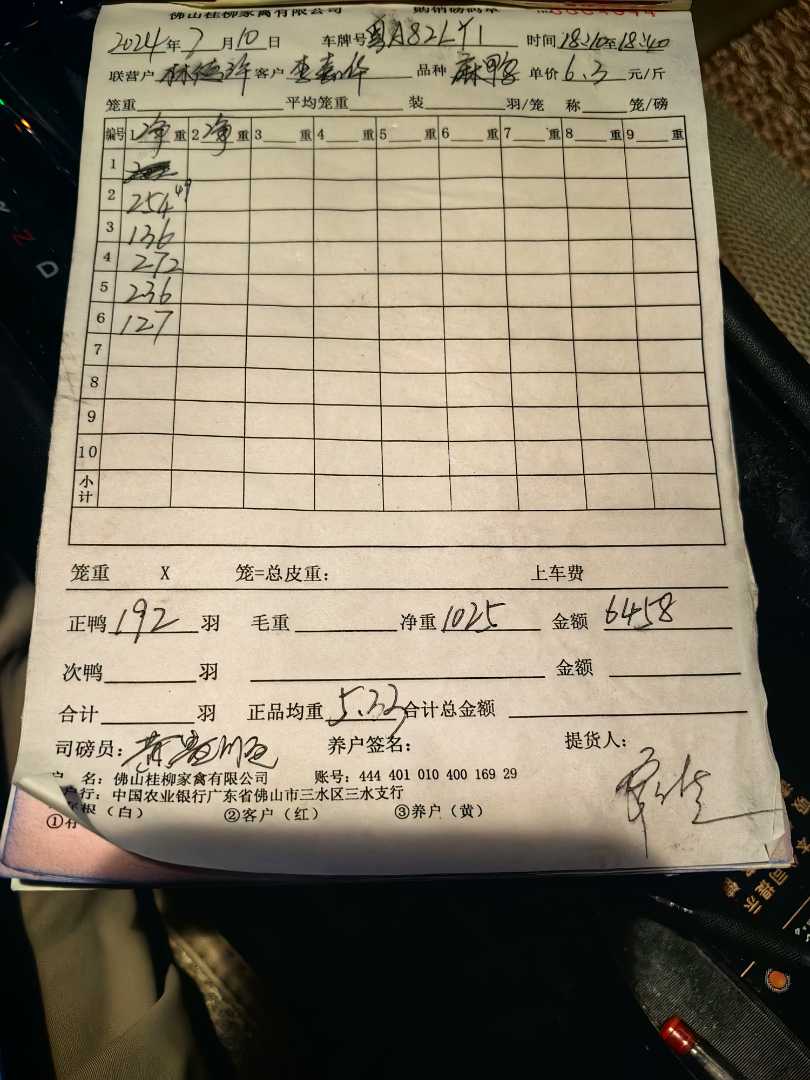 佛山桂柳家禽有限公司
2024年7月10日 车牌号 粤A82LY1 时间 18:10至18:40
联营户 客户 李嘉华 品种 麻鸭 单价 6.3 元/斤
笼重 平均笼重 装 羽/笼 称 笼/磅
编号 1 净 重 2 净 重 3 重 4 重 5 重 6 重 7 重 8 重 9 重
1
2 254 49
3 136
4 272
5 236
6 127
7
8
9
10
小计
笼重 X 笼=总皮重: 上车费
正鸭 192 羽 毛重 净重 1025 金额 6458
次鸭 羽 金额
合计 羽 正品均重 5.33 合计总金额
司磅员: 养户签名: 提货人:
户 名: 佛山桂柳家禽有限公司 账号: 444 401 010 400 169 29
户行: 中国农业银行广东省佛山市三水区三水支行
①存根(白) ②客户(红) ③养户(黄)